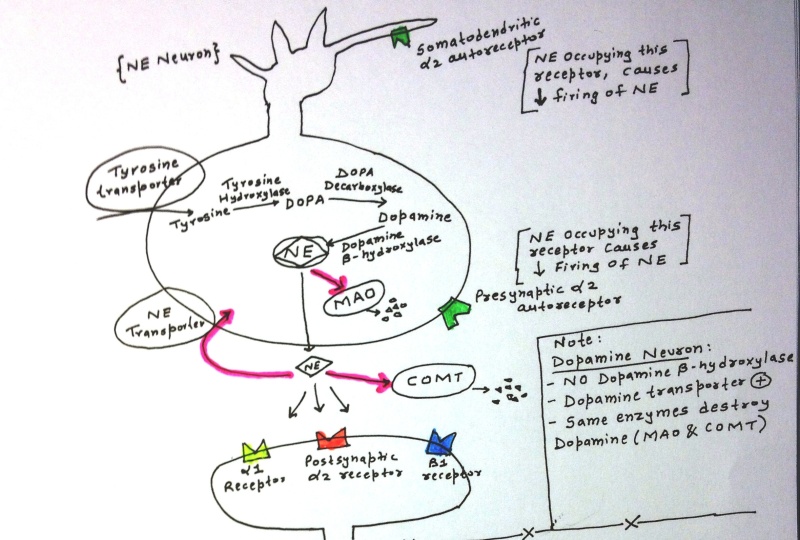 {NE Neuron}
Somatodendritic
α2 autoreceptor
[NE occupying this
receptor, causes
↓ firing of NE]
Tyrosine
transporter
Tyrosine
Tyrosine
Hydroxylase
DOPA
DOPA
Decarboxylase
Dopamine
Dopamine
β-hydroxylase
NE
MAO
[NE occupying this
receptor causes
↓ Firing of NE]
Presynaptic α2
autoreceptor
NE
Transporter
NE
COMT
α1
Receptor
Postsynaptic
α2 receptor
B1
receptor
Note:
Dopamine Neuron:
- NO Dopamine β-hydroxylase
- Dopamine transporter (+)
- Same enzymes destroy
Dopamine (MAO & COMT)